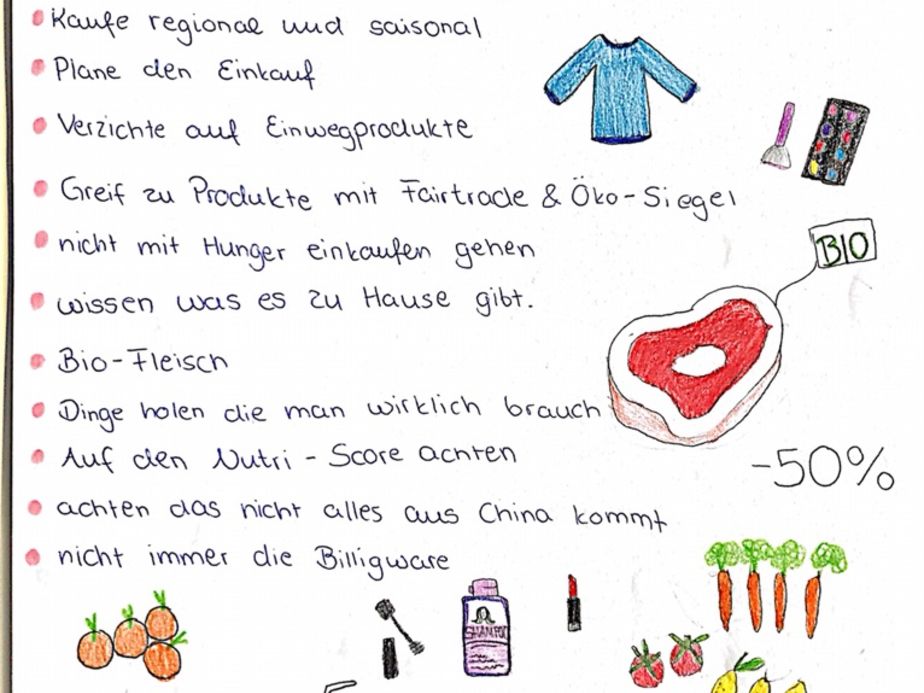 Kaufe regional und saisonal
Plane den Einkauf
Verzichte auf Einwegprodukte
Greif zu Produkte mit Fairtrade & Öko-Siegel
nicht mit Hunger einkaufen gehen
BIO
wissen was es zu Hause gibt.
Bio-Fleisch
Dinge holen die man wirklich brauch
Auf den Nutri-Score achten
-50%
achten das nicht alles aus China kommt
nicht immer die Billigware